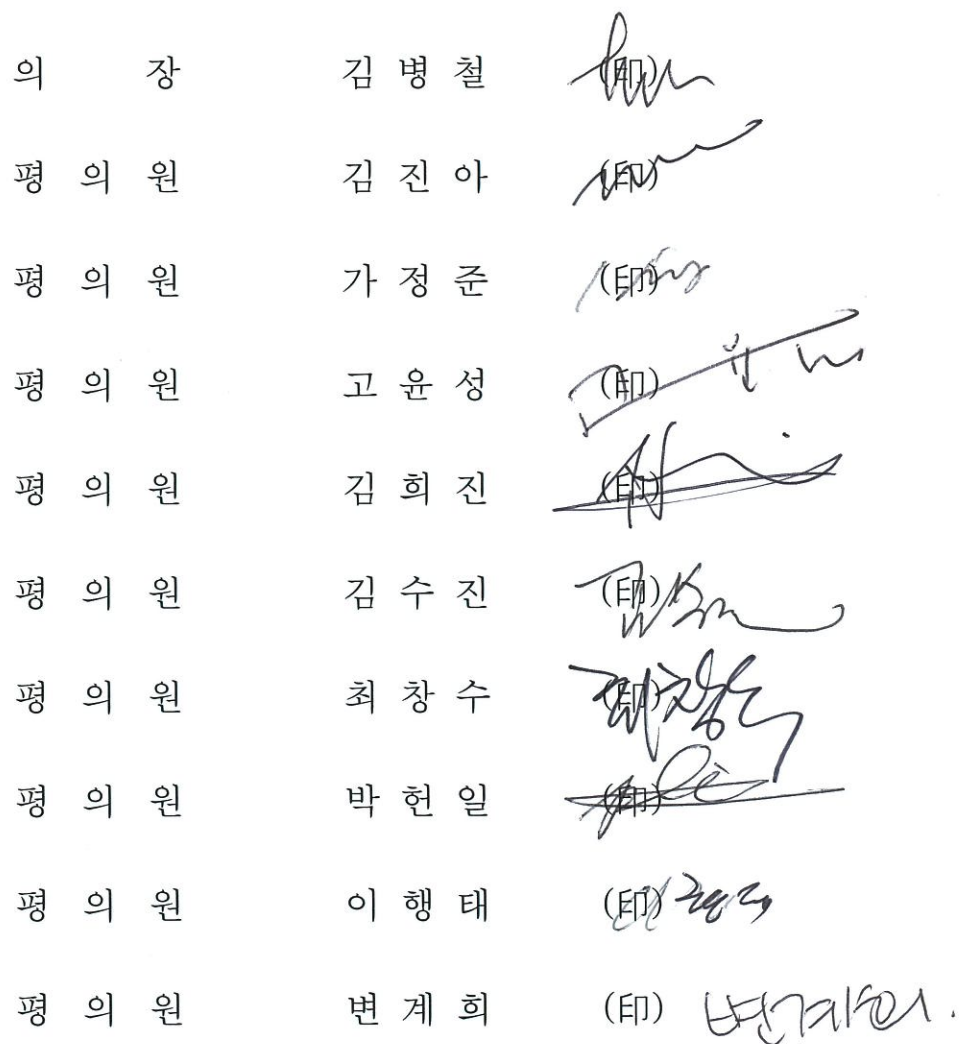 의 장 김 병 철 (印)
평 의 원 김 진 아 (印)
평 의 원 가 정 준 (印)
평 의 원 고 윤 성 (印)
평 의 원 김 희 진 (印)
평 의 원 김 수 진 (印)
평 의 원 최 창 수 (印) 최창수
평 의 원 박 헌 일 (印)
평 의 원 이 행 태 (印)
평 의 원 변 계 희 (印) 변계희.